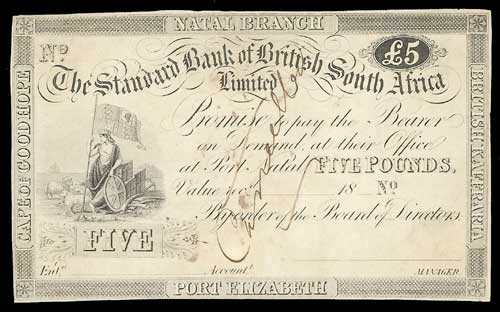 NATAL BRANCH
No. £5
The Standard Bank of British South Africa
Limited
Promise to pay the Bearer
on Demand, at their Office
at Port Natal FIVE POUNDS,
Value recd. 18 No
By order of the Board of Directors.
FIVE
Entd. Accountt. MANAGER
PORT ELIZABETH
CAPE OF GOOD HOPE
BRITISH KAFFRARIA
Cancelled